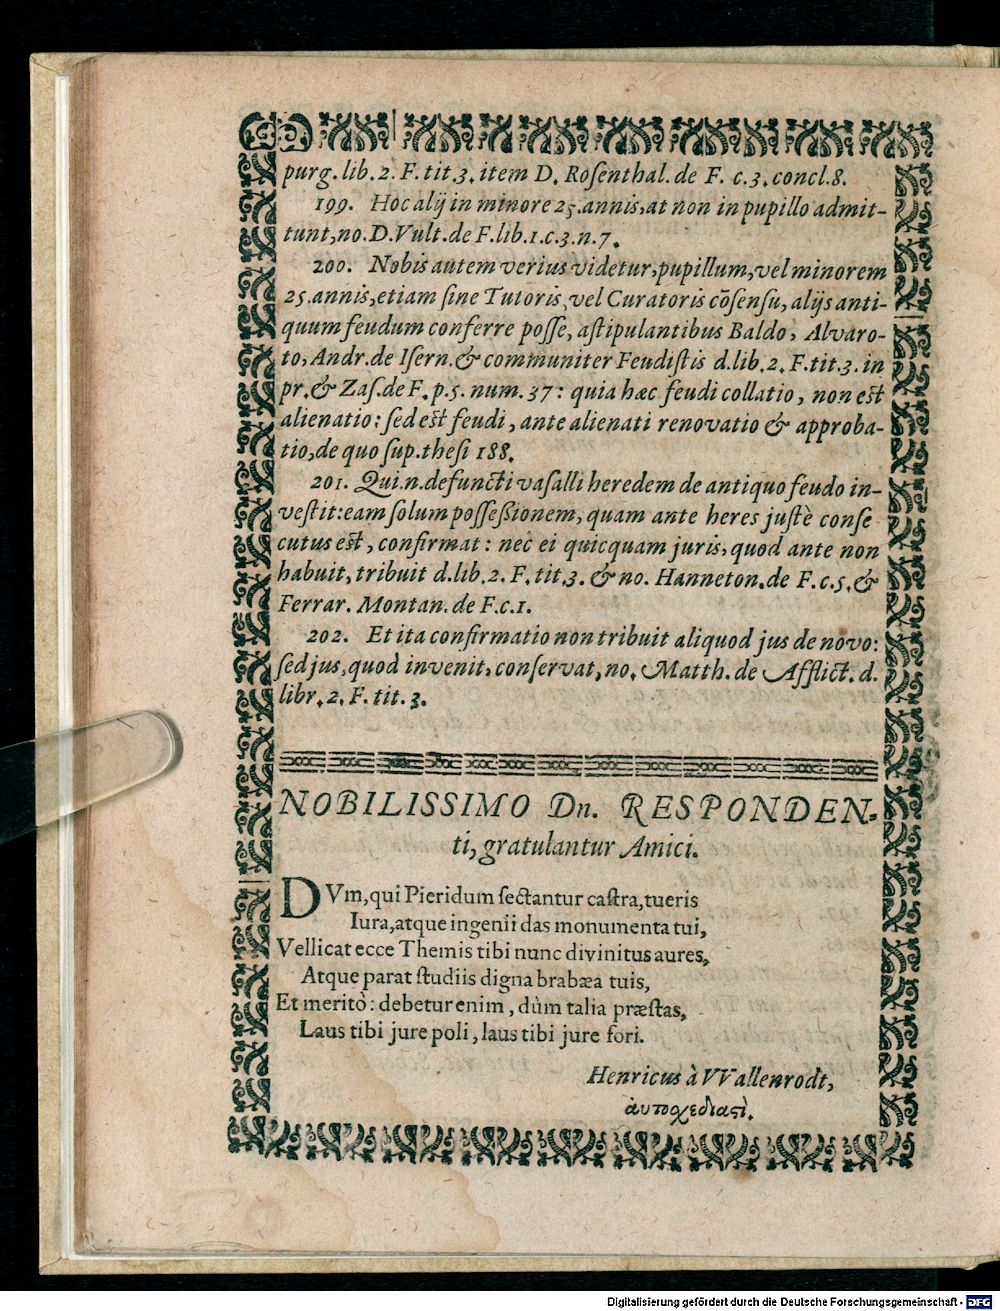 purg. lib. 2. F. tit. 3. item D. Roſenthal. de F. c. 3. concl. 8.
199. Hoc alij in minore 25. annis, at non in pupillo admit-
tunt, no. D. Vult. de F. lib. 1. c. 3. n. 7.
200. Nobis autem verius videtur, pupillum, vel minorem
25. annis, etiam ſine Tutoris, vel Curatoris cōſenſu, alijs anti-
quum feudum conferre poſſe, aſtipulantibus Baldo, Alvaro-
to, Andr. de Iſern. & communiter Feudiſtis d. lib. 2. F. tit. 3. in
pr. & Zaſ. de F. p. 5. num. 37: quia hæc feudi collatio, non eſt
alienatio: ſed eſt feudi, ante alienati renovatio & approba-
tio, de quo ſup. theſi 188.
201. Qui. n. defuncti vaſalli heredem de antiquo feudo in-
veſtit: eam ſolum poſſeßionem, quam ante heres juſtè conſe
cutus eſt, confirmat: nec ei quicquam juris, quod ante non
habuit, tribuit d. lib. 2. F. tit. 3. & no. Hanneton. de F. c. 5. &
Ferrar. Montan. de F. c. 1.
202. Et ita confirmatio non tribuit aliquod jus de novo:
ſed jus, quod invenit, conſervat, no. Matth. de Afflict. d.
libr. 2. F. tit. 3.
NOBILISSIMO Dn. RESPONDEN-
ti, gratulantur Amici.
DVm, qui Pieridum ſectantur caſtra, tueris
Iura, atque ingenii das monumenta tui,
Vellicat ecce Themis tibi nunc divinitus aures,
Atque parat ſtudiis digna brabæa tuis,
Et meritò: debetur enim, dùm talia præſtas,
Laus tibi jure poli, laus tibi jure fori.
Henricus à VVallenrodt,
ἀυτοχεδιαςὶ.
Digitalisierung gefördert durch die Deutsche Forschungsgemeinschaft - DFG